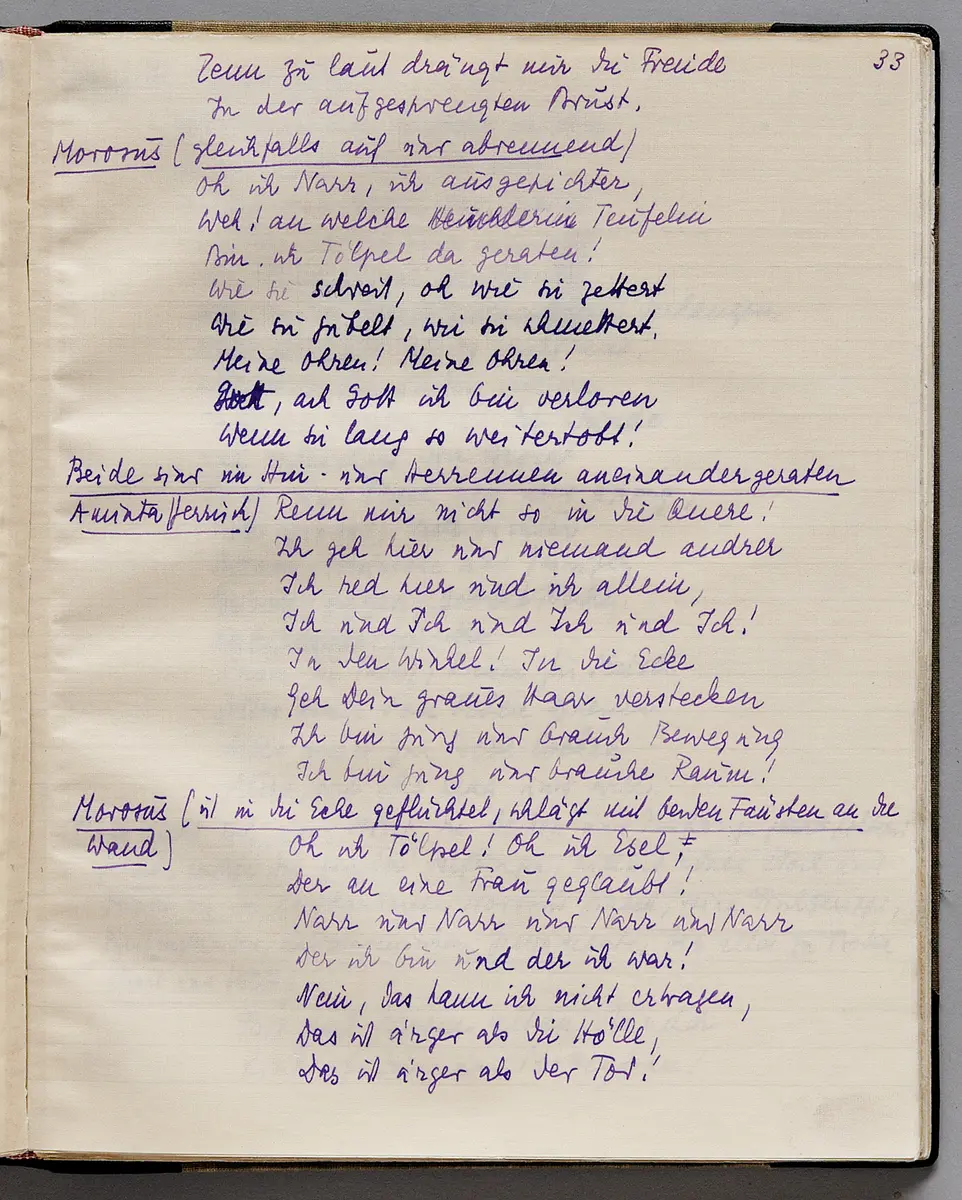 33
Denn zu laut drängt mir die Freude
In der aufgesprengten Brust.
Morosus (gleichfalls auf und abrennend)
Oh ich Narr, ich ausgepichter,
Weh! an welche Heuchlerin Teufelin
Bin ich Tölpel da geraten!
Wie sie schreit, oh wie sie zettert
Wie sie jubelt, wie sie schmettert.
Meine Ohren! Meine Ohren!
Gott, ach Gott ich bin verloren
Wenn sie lang so weitertobt!
Beide sind im Hin- und Herrennen aneinandergeraten
Aminta (herrisch) Renn mir nicht so in die Quere!
Ich geh hier und niemand andrer
Ich red hier und ich allein,
Ich und Ich und Ich und Ich!
In den Winkel! In die Ecke
Geh Dein graues Haar verstecken
Ich bin jung und brauch Bewegung
Ich bin jung und brauche Raum!
Morosus (ist in die Ecke geflüchtet, schlägt mit beiden Fäusten an die
Wand)
Oh ich Tölpel! Oh ich Esel,
Der an eine Frau geglaubt!
Narr und Narr und Narr und Narr
Der ich bin und der ich war!
Nein, das kann ich nicht ertragen,
Das ist ärger als die Hölle,
Das ist ärger als der Tod!